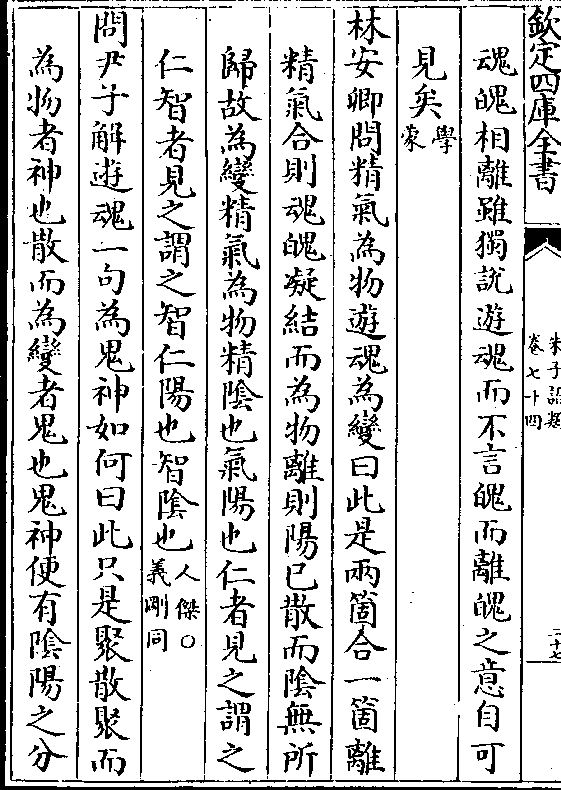 欽定四庫全書
朱子語類
卷七十四
二十七
魂魄相離雖獨說遊魂而不言魄而離魄之意自可
見矣學
蒙
林安卿問精氣為物遊魂為變曰此是兩箇合一箇離
精氣合則魂魄凝結而為物離則陽已散而陰無所
歸故為變精氣為物精陰也氣陽也仁者見之謂之
仁智者見之謂之智仁陽也智陰也人傑○
義剛同
問尹子解遊魂一句為鬼神如何曰此只是聚散聚而
為物者神也散而為變者鬼也鬼神便有陰陽之分